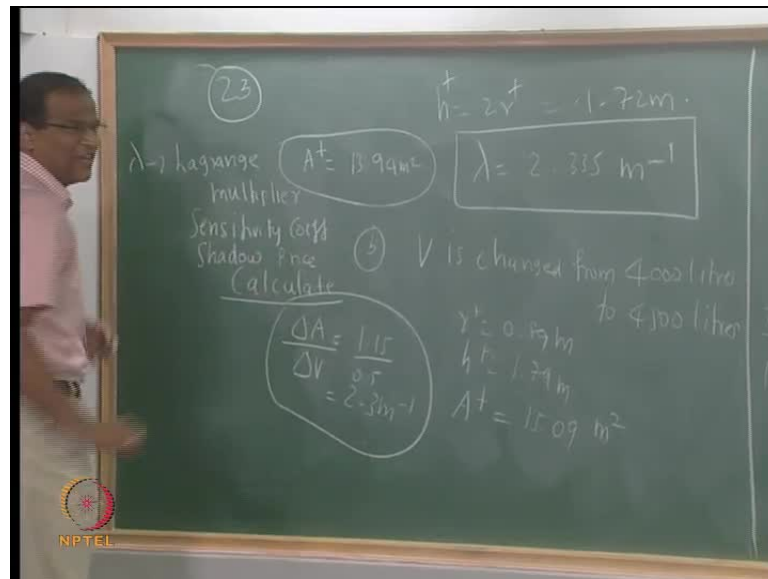 23
h⁺ = 2r⁺ = 1.72m.
λ → Lagrange
multiplier
A⁺ = 13.94m²
λ = 2.335 m⁻¹
Sensitivity Coeff
Shadow Price
Calculate
(b) V is changed from 4000 litres
to 4500 litres
ΔA/ΔV = 1.15/0.5
= 2.3m⁻¹
r⁺ = 0.89m
h⁺ = 1.79m
A⁺ = 15.09 m²
NPTEL